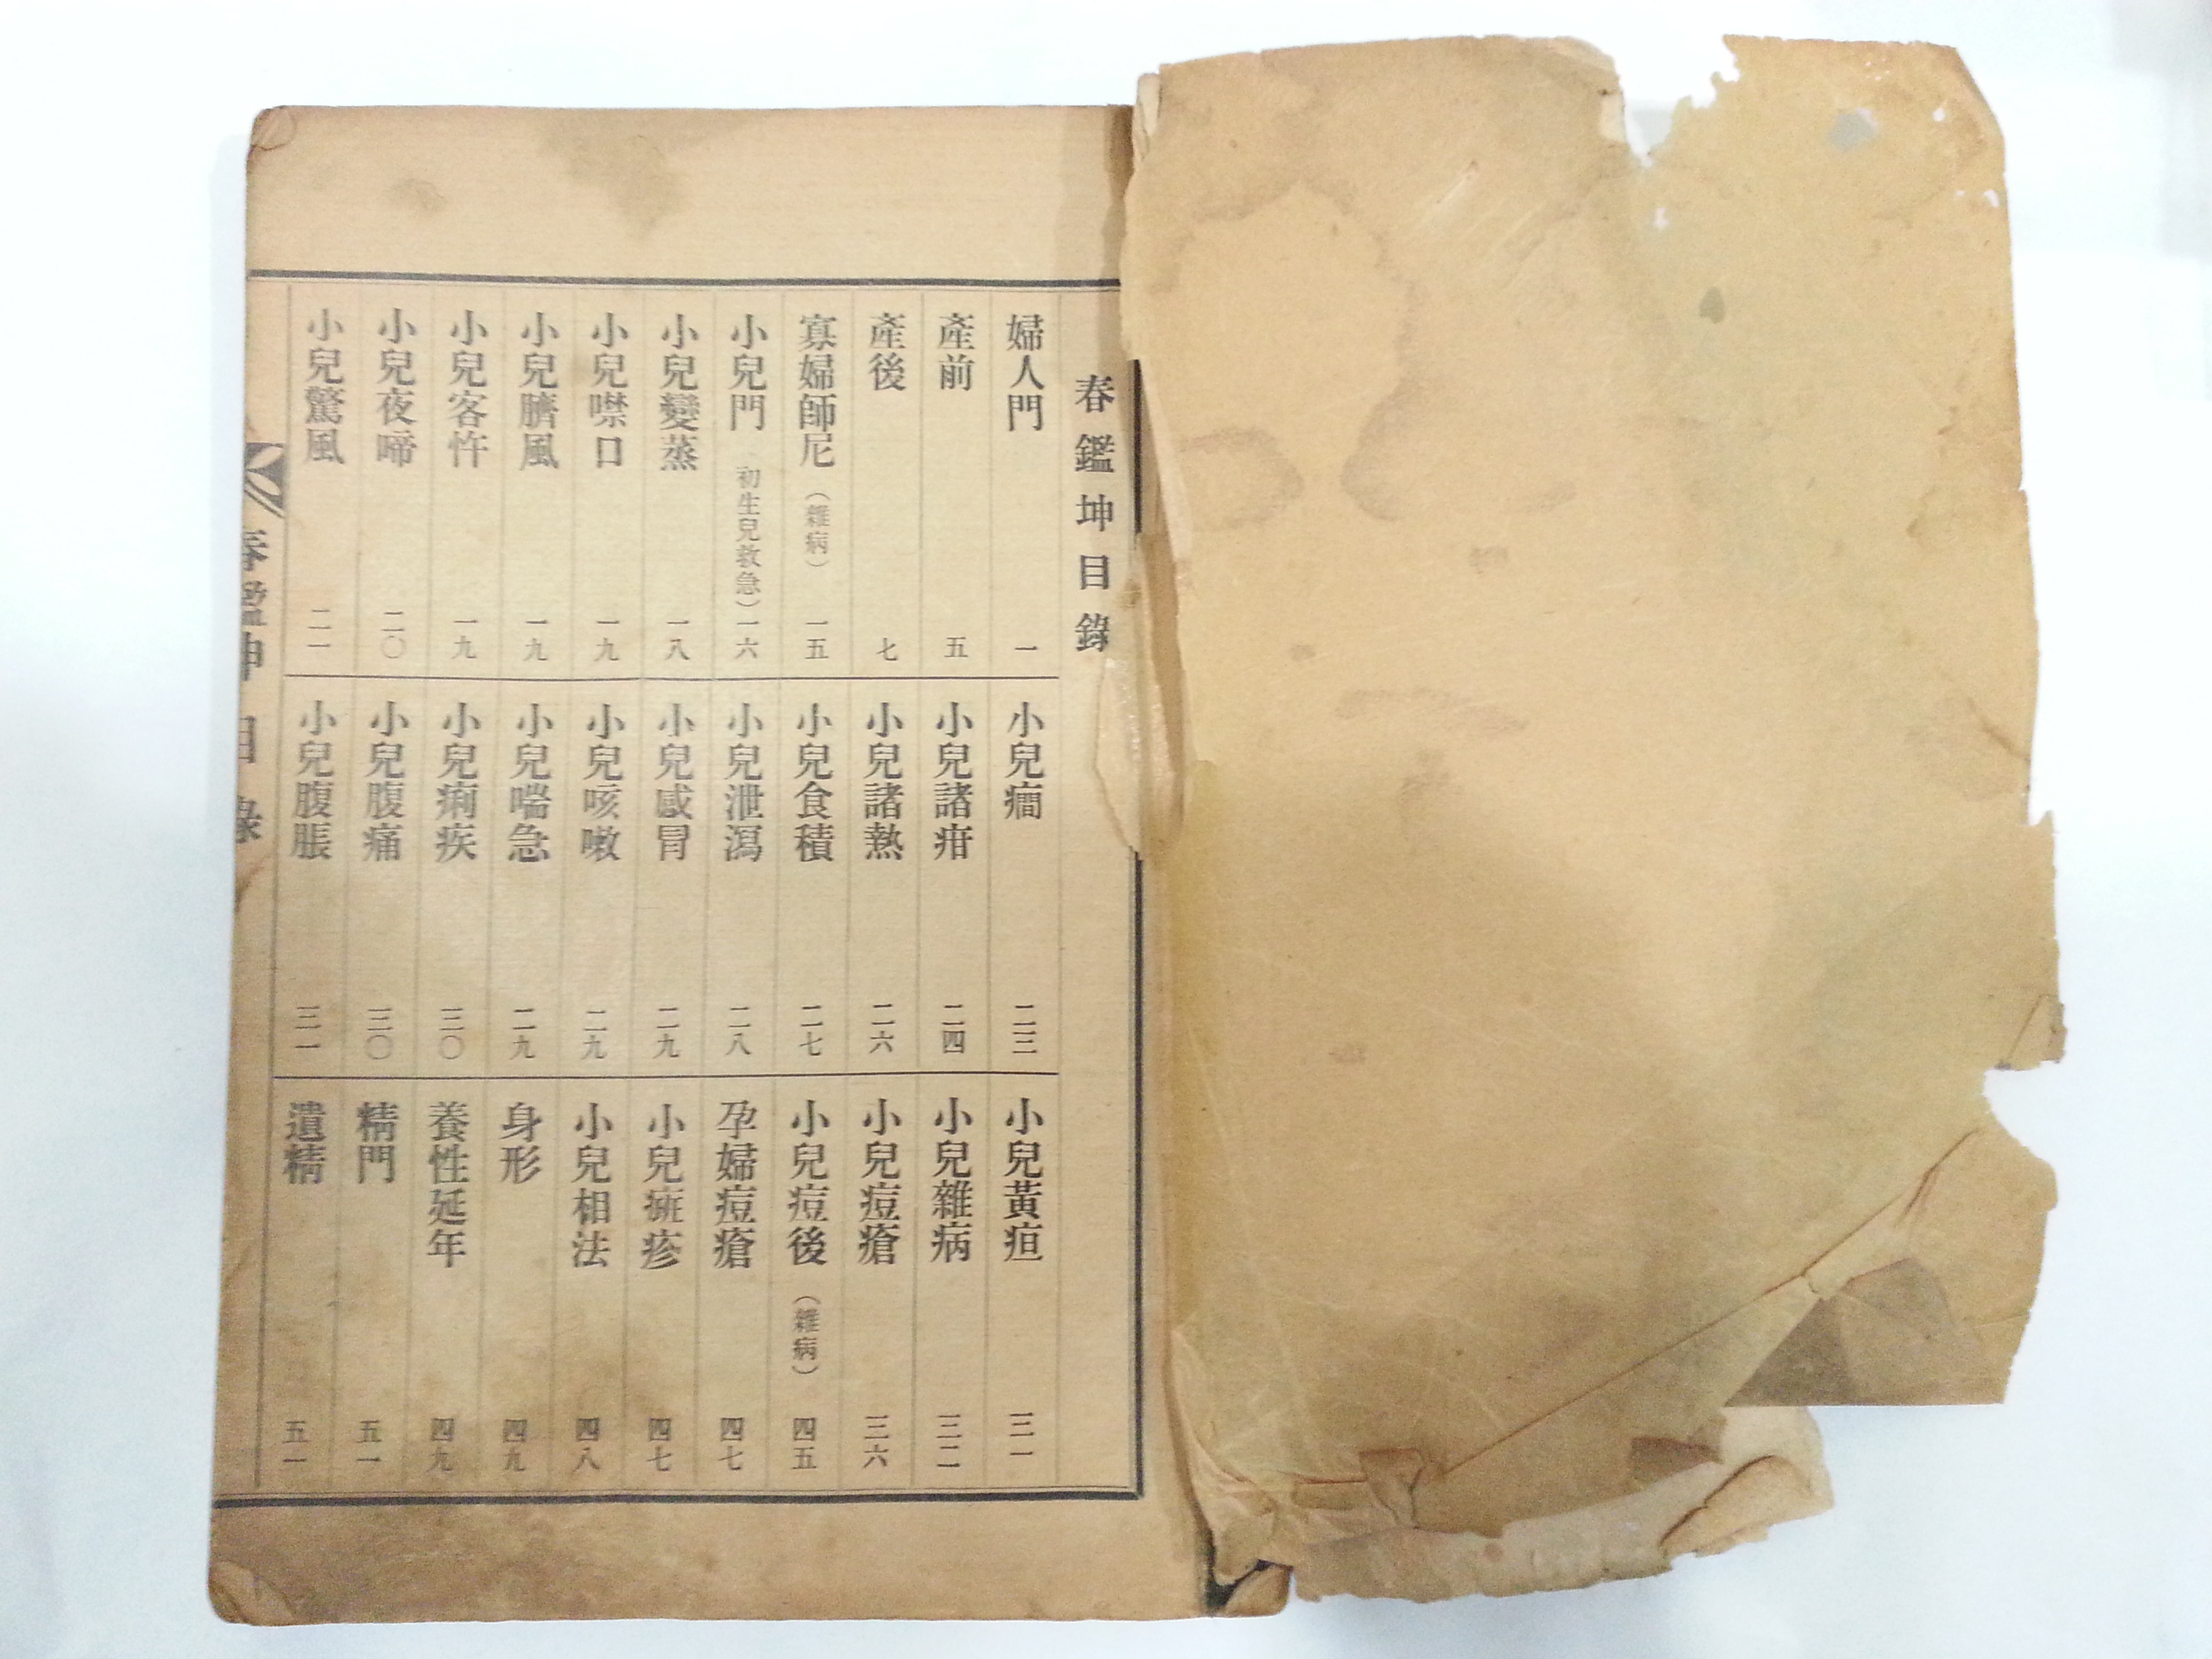 春鑑坤目錄
婦人門 一
產前 五
產後 七
寡婦師尼（雜病） 一五
小兒門 初生兒救急） 一六
小兒變蒸 一八
小兒噤口 一九
小兒臍風 一九
小兒客忤 一九
小兒夜啼 二〇
小兒驚風 二一
小兒癎 二三
小兒諸疳 二四
小兒諸熱 二六
小兒食積 二七
小兒泄瀉 二八
小兒感冒 二九
小兒咳嗽 二九
小兒喘急 二九
小兒痢疾 三〇
小兒腹痛 三〇
小兒腹脹 三一
小兒黃疸 三一
小兒雜病 三二
小兒痘瘡 三六
小兒痘後（雜病） 四五
孕婦痘瘡 四七
小兒斑疹 四七
小兒相法 四八
身形 四九
養性延年 四九
精門 五一
遺精 五一
春鑑坤 目錄